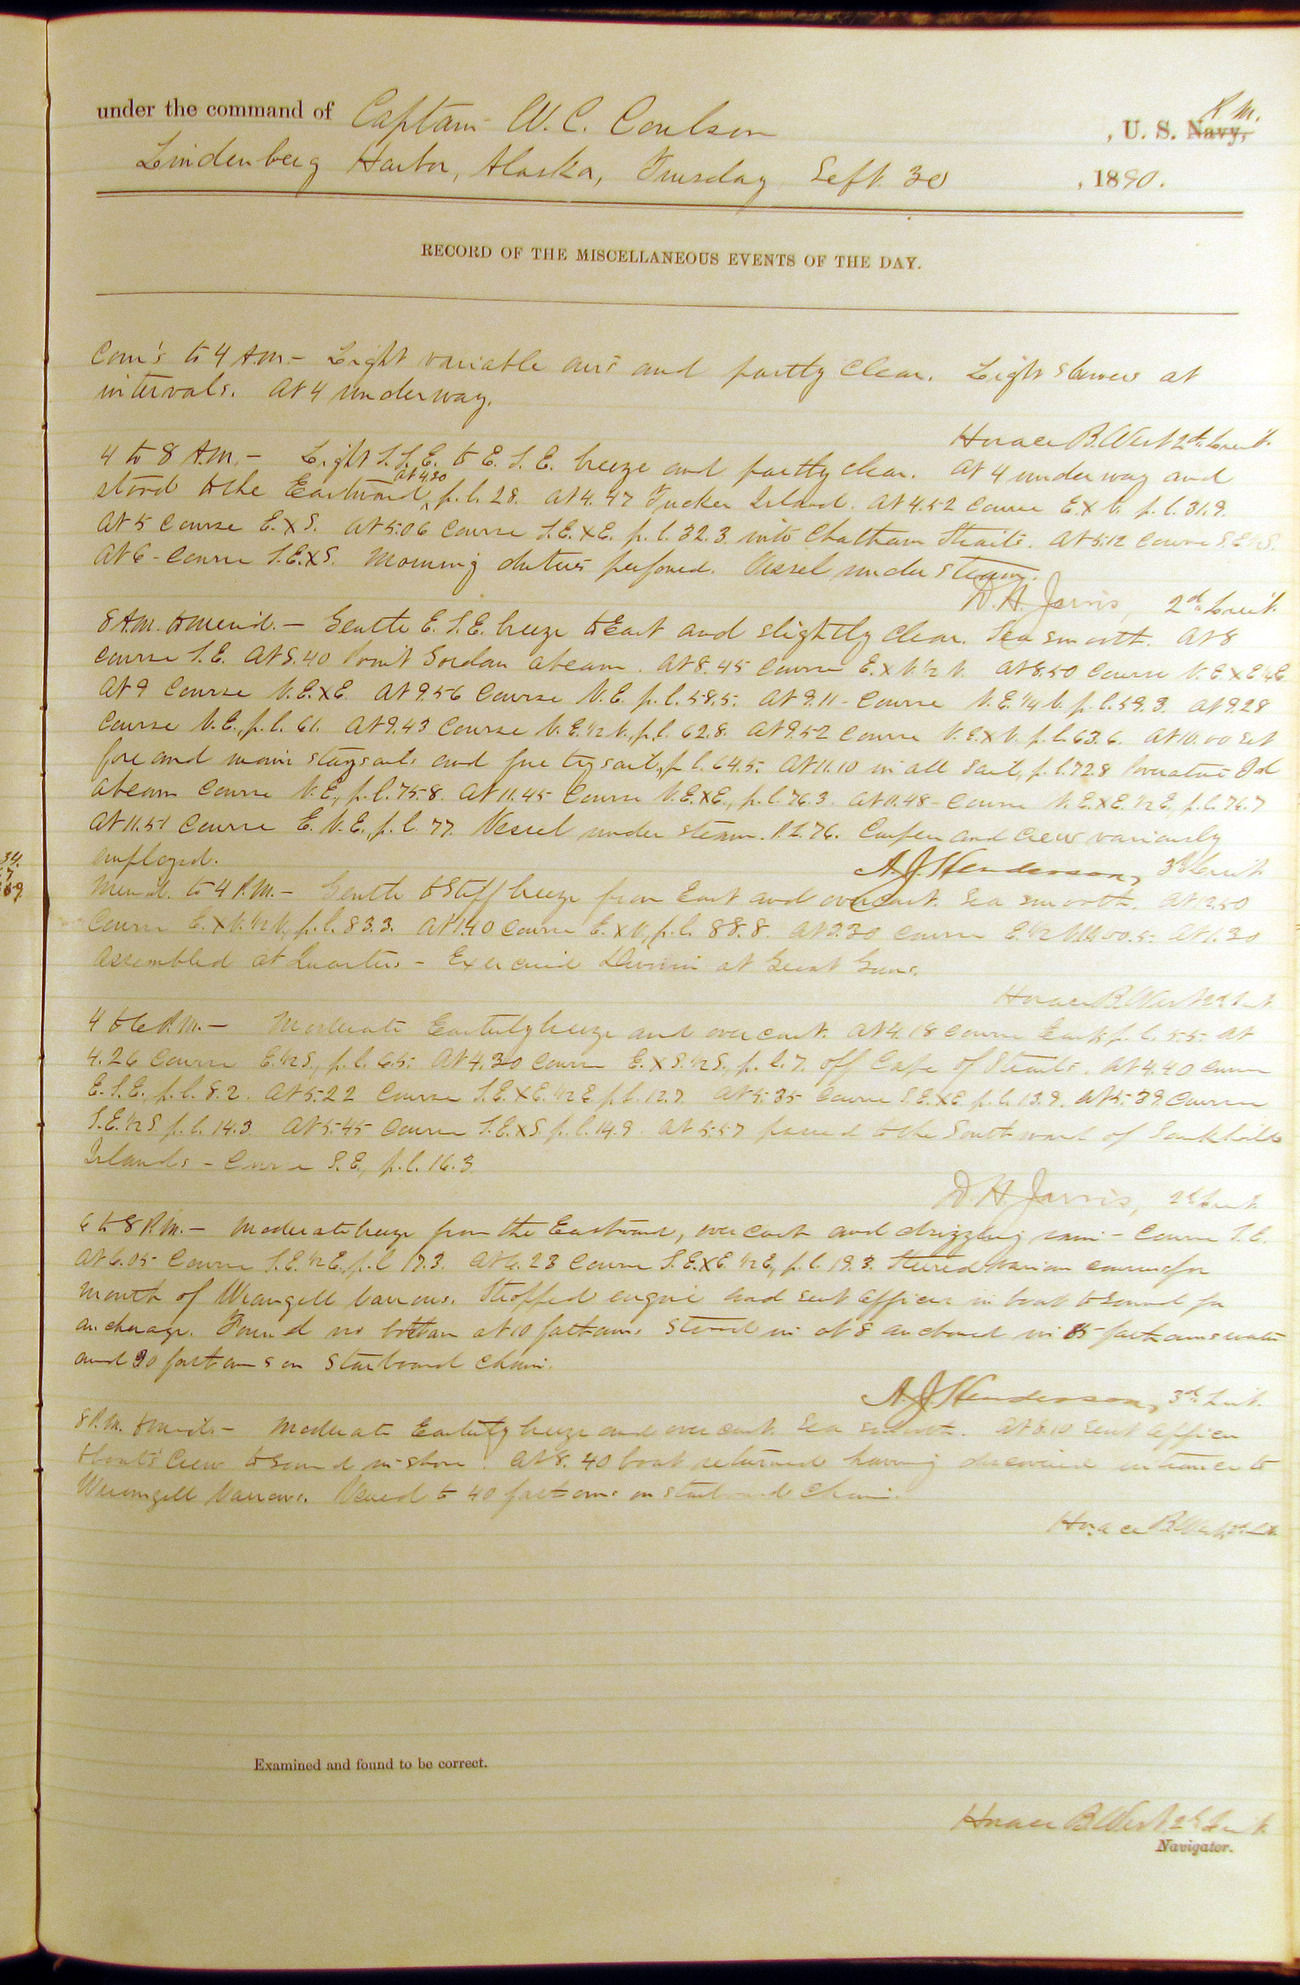 under the command of Captain W. C. Coulson , U. S. Navy, R. M.
Lindenberg Harbor, Alaska, Tuesday Sept. 30 , 1890.
RECORD OF THE MISCELLANEOUS EVENTS OF THE DAY.
Com's to 4 A.M. – Light variable airs and partly clear. Light showers at
intervals. At 4 underway.
Horace B. West 2d. Lieut.
4 to 8 A.M. – Light S.S.E. to E.S.E. breeze and partly clear. At 4 underway and
stood to the Eastward, at 4.30 p.l. 28. At 4.47 Tucker Island. At 4.52 course E.xN. p.l. 31.9.
At 5 course E.xS. At 5.06 course S.E.xE. p.l. 32.3 into Chatham Straits. At 5.12 course S.E.½S.
At 6 - course S.E.xS. Morning duties performed. Vessel under steam.
D. H. Jarvis, 2d. Lieut.
8 A.M. to merid. – Gentle E.S.E. breeze to East and slightly clear. Sea smooth. At 8
course S.E. At 8.40 Point Gordan abeam. At 8.45 course E.xN.½N. At 8.50 course N.E.xE½E
At 9 course N.E.xE. At 9.56 course N.E. p.l. 58.5. At 9.11 - course N.E.¼N. p.l. 59.3. At 9.28
course N.E., p.l. 61. At 9.43 course N.E.½N., p.l. 62.8. At 9.52 course N.E.xN. p.l. 63.6. At 10.00 set
fore and main staysails and fore trysail, p.l. 64.5. At 11.10 in all sail, p.l. 72.8 Isd
abeam course N.E., p.l. 75.8. At 11.45 course N.E.xE., p.l. 76.3. At 11.48 - course N.E.xE.½E, p.l. 76.7
At 11.51 course E.N.E., p.l. 77. Vessel under steam. P.L. 76. Carpen and crew variously
employed.
A. J. Henderson, 3d. Lieut.
Merid. to 4 P.M. – Gentle to stiff breeze from East and overcast. Sea smooth. At 12.50
course E.xN.½N., p.l. 83.3. At 1.40 course E.xN., p.l. 88.8. At 3.30 course E.½N. 00.5. At 1.30
assembled at Quarters - Exercised Division at Great Guns.
Horace B. West 2d Lieut
4 to 6 P.M. – Moderate Easterly breeze and overcast. At 4.18 course East, p.l. 5.5. At
4.26 course E.½S., p.l. 6.5. At 4.30 course E.xS.½S., p.l. 7. off Cape of Straits. At 4.40 course
E.S.E., p.l. 8.2. At 5.22 course S.E.xE.½E p.l. 12.7. At 5.35 course S.E.xE p.l. 13.9. At 5.39 course
S.E.½S p.l. 14.3 At 5.45 course S.E.xS p.l. 14.9. At 5.57 passed to the Southward of
Islands - course S.E., p.l. 16.3
D. H. Jarvis, 2d. Lieut.
6 to 8 P.M. – Moderate breeze from the Eastward, overcast and drizzling rain - course S.E.
At 6.05 course S.E.½E., p.l. 17.3. At 6.23 course S.E.xE.½E, p.l. 19.3. Steered various courses for
mouth of Wrangell Narrows. Stopped engine and sent officer in boat to sound for
anchorage. Found no bottom at 10 fathoms. Stood in at 8 anchored in 15 fathoms water
and 30 fathoms on starboard chain.
A. J. Henderson, 3d. Lieut.
8 P.M. to mid. – Moderate Easterly breeze and overcast. Sea smooth. At 8.10 sent officer
& boat's crew to sound in shore. At 8.40 boat returned having discovered entrance to
Wrangell Narrows. Veered to 40 fathoms on starboard chain.
Horace B. West, 2d. Lt.
Examined and found to be correct.
Horace B. West, 2d Lieut.
Navigator.
34.
7